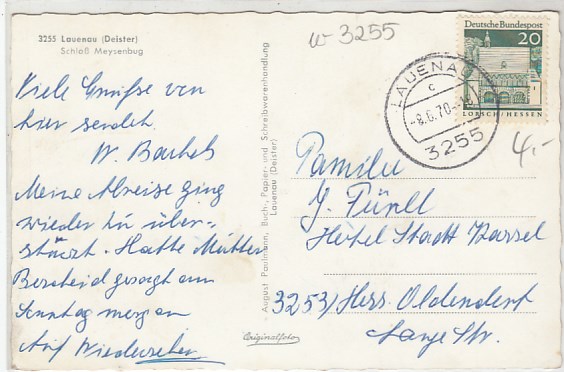 3255 Lauenau (Deister)
Schloß Meysenbug
w 3255
Deutsche Bundespost
20
LORSCH/HESSEN
LAUENAU
c
-8.6.70-
3255
4,-
Viele Grüße von
hier sendet
W.
Meine Abreise ging
wieder zu über-
stürzt. Hatte Mutter
Bescheid gesagt am
Sonntag morgen
Auf Wiedersehen
August Paulmann, Buch-, Papier- und Schreibwarenhandlung
Lauenau (Deister)
Originalfoto
Familie
J.
Hotel Stadt Kassel
3253 / Hess. Oldendorf
Lange Str.